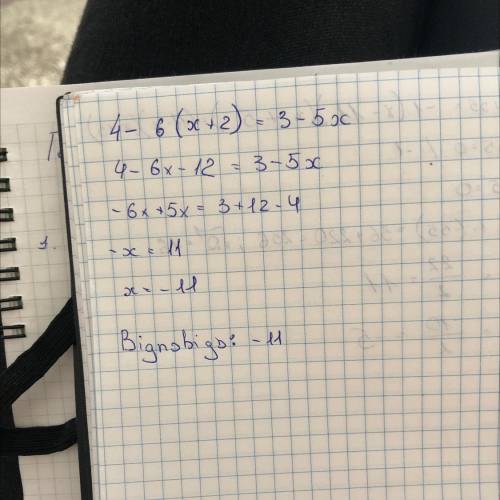 4 - 6 (x+2) = 3 - 5x
4 - 6x - 12 = 3 - 5x
-6x + 5x = 3 + 12 - 4
-x = 11
x = -11
Відповідь: -11
1.